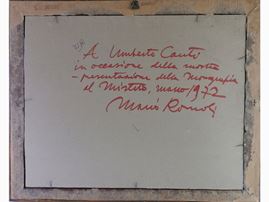 A Umberto Cantù
in occasione della mostra
- presentazione della Monografia
al Mistero, marzo/972
Mario Romoli